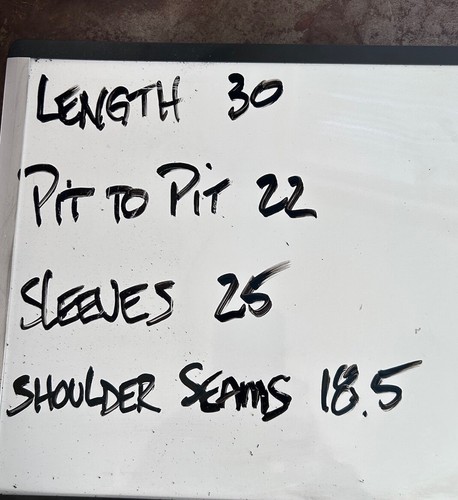 LENGTH 30
PIT TO PIT 22
SLEEVES 25
SHOULDER SEAMS 18.5